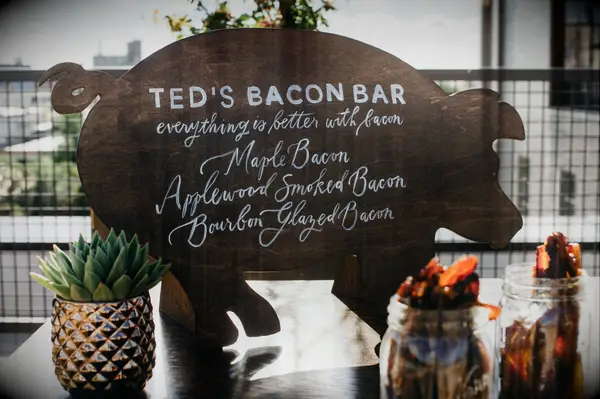 TED'S BACON BAR
everything is better with bacon
Maple Bacon
Applewood Smoked Bacon
Bourbon Glazed Bacon